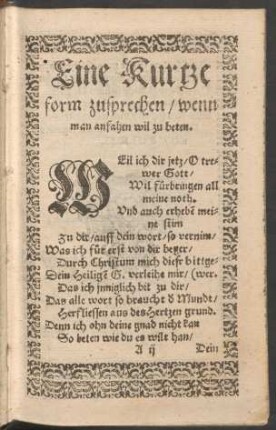 Eine Kurtze
form zusprechen / wenn
man anfahen wil zu beten.
WEil ich dir jetz / O tre-
wer Gott /
Wil fürbringen all
meine noth.
Vnd auch erhebē mei-
ne stim
Zu dir / auff dein wort / so vernim /
Was ich für erst von dir beger /
Durch Christum mich dieser bittge-
Dein Heiligē G. verleihe mir / (wer.
Das ich jnniglich bit zu dir /
Das alle wort so braucht d Mundt /
Herfliessen aus des Hertzen grund.
Denn ich ohn deine gnad nicht kan
So beten wie du es wilt han /
A ij Dein